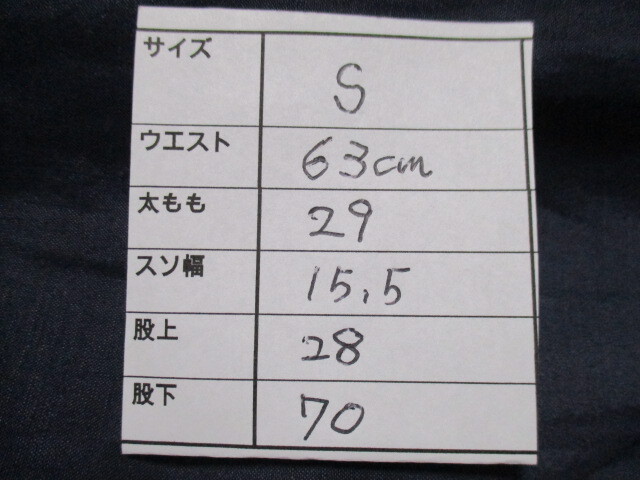 サイズ S
ウエスト 63cm
太もも 29
スソ幅 15.5
股上 28
股下 70